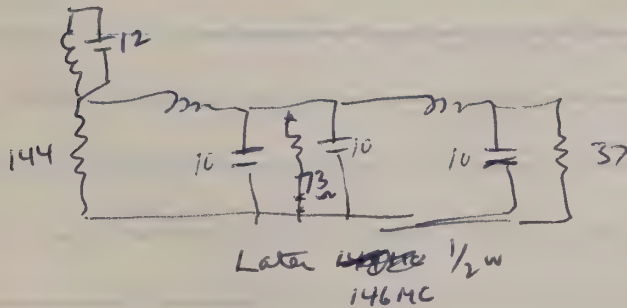 12
144
10
73Ω
10
10
37
Later 1/2 W
146 MC